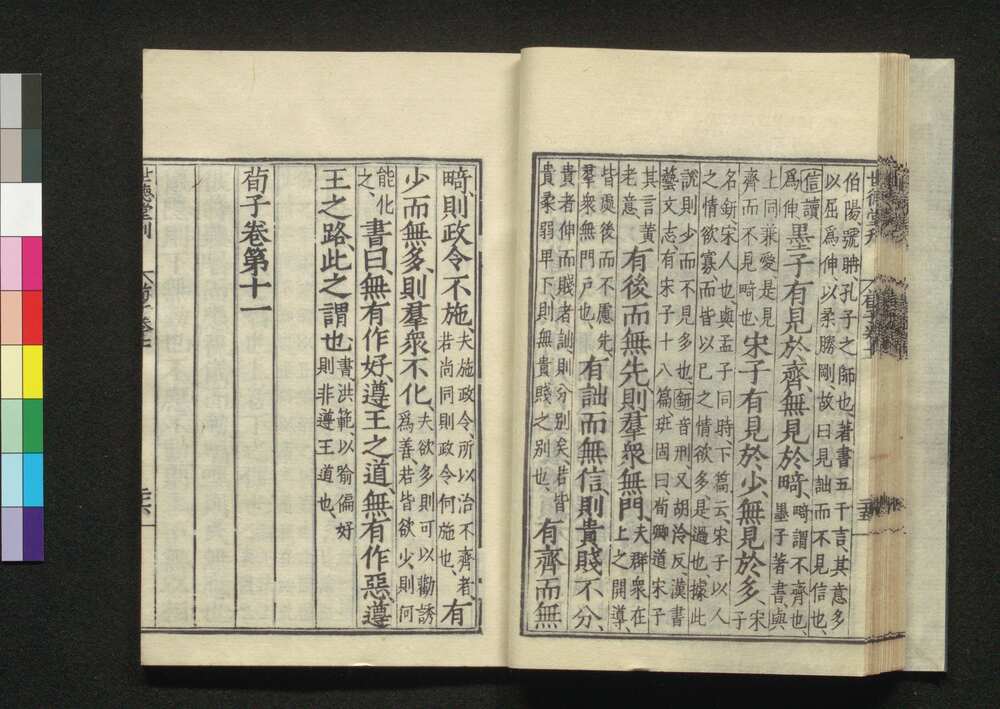 世德堂刊
伯陽號聃、孔子之師也、著書五千言、其意多
以屈爲伸、以柔勝剛、故曰見詘而不見信也、
信讀爲伸、墨子有見於齊、無見於畸、畸謂不齊也、墨子著書、與
上同兼愛是見齊而不見畸也、宋子有見於少、無見於多、宋子
名鈃、宋人也、與孟子同時、下篇云宋子以人
之情欲寡而皆以己之情欲多是過也、據此
說則少而不見多也、鈃音刑、又胡泠反、漢書
藝文志、有宋子十八篇、班固曰、荀卿道宋子
其言黃老意、有後而無先、則羣衆無門、夫群衆在上之開導、
皆處後而不處先、羣衆無門戶也、有詘而無信、則貴賤不分、
貴者伸而賤者詘、則分別矣、若皆貴柔弱卑下、則無貴賤之別也、有齊而無
畸、則政令不施、夫施政令、所以治不齊者、若尚同則政令何施也、有
少而無多、則羣衆不化、夫欲多則可以勸誘爲善、若皆欲少、則何
能化之、書曰、無有作好、遵王之道、無有作惡、遵
王之路、此之謂也、書洪範以喻偏好則非遵王道也、
荀子卷第十一